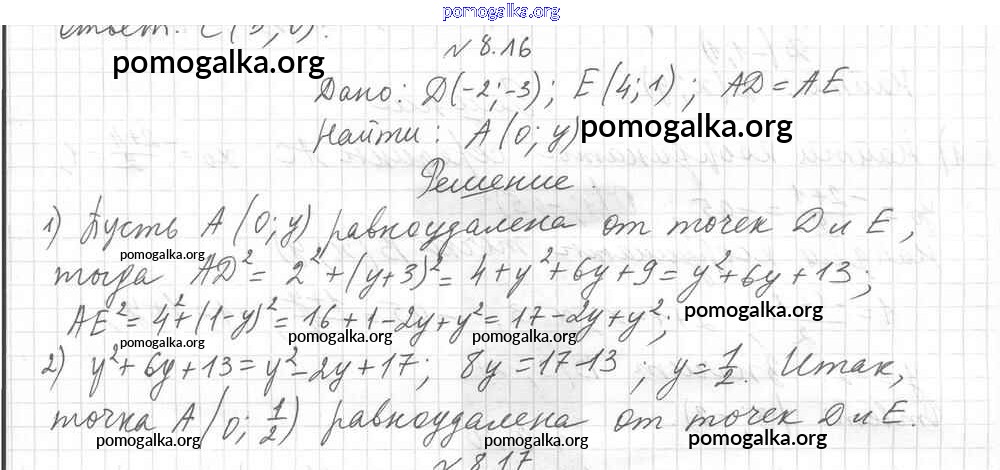 pomogalka.org
Ответ: C(3; 0).
№ 8.16
pomogalka.org
Дано: D(-2; -3); E(4; 1); AD = AE
Найти: A(0; y)
pomogalka.org
Решение.
1) Пусть A(0; y) равноудалена от точек D и E,
pomogalka.org
тогда AD² = 2² + (y+3)² = 4 + y² + 6y + 9 = y² + 6y + 13;
pomogalka.org
AE² = 4² + (1-y)² = 16 + 1 - 2y + y² = 17 - 2y + y²;
pomogalka.org pomogalka.org pomogalka.org
2) y² + 6y + 13 = y² - 2y + 17; 8y = 17-13; y = 1/2. Итак,
точка A(0; 1/2) равноудалена от точек D и E.
pomogalka.org pomogalka.org pomogalka.org
№ 8.17